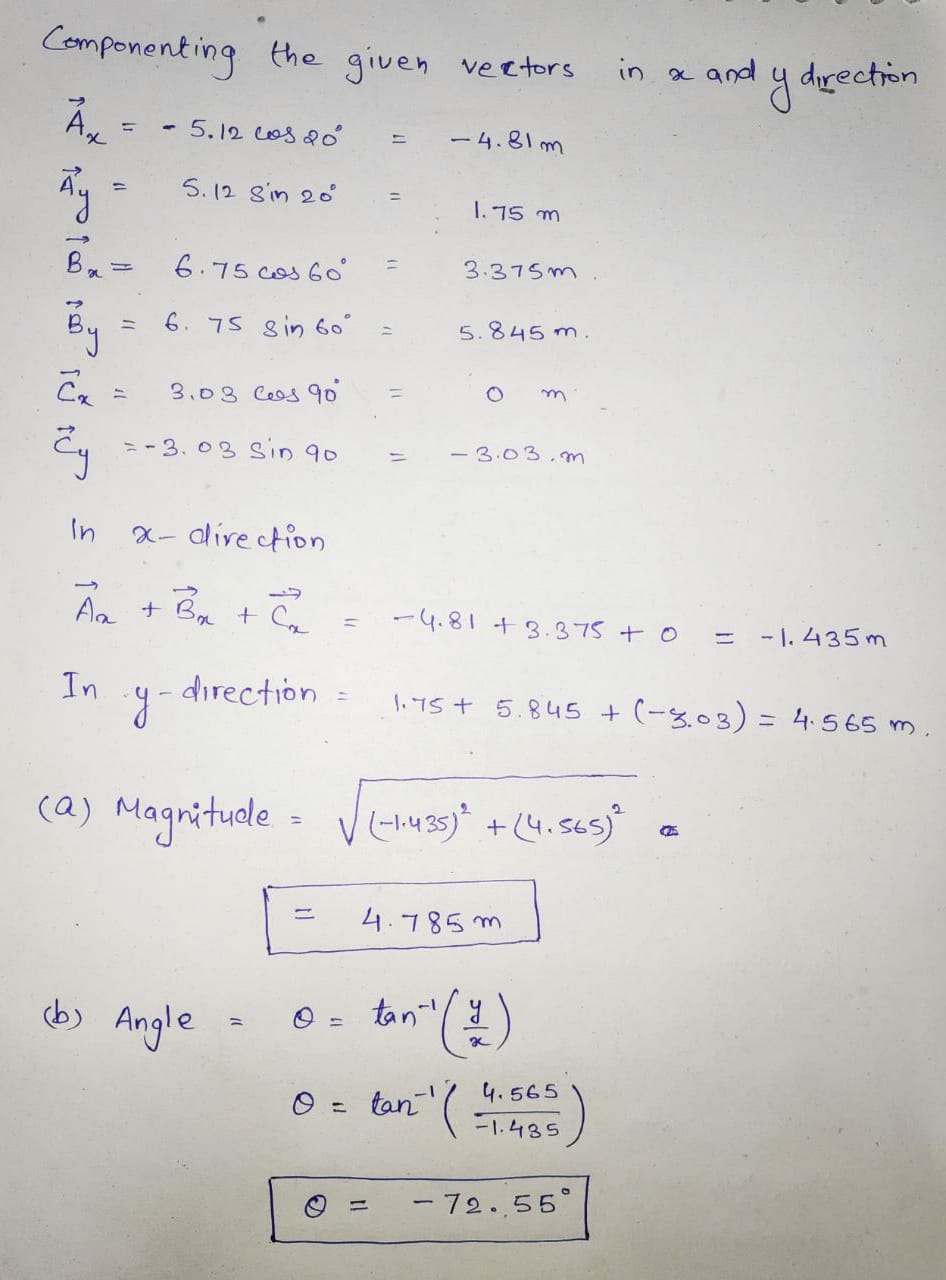 Componenting the given vectors in x and y direction
A⃗x = - 5.12 cos 20° = - 4.81 m
A⃗y = 5.12 sin 20° = 1.75 m
B⃗x = 6.75 cos 60° = 3.375 m.
B⃗y = 6.75 sin 60° = 5.845 m.
C⃗x = 3.03 cos 90° = 0 m
C⃗y = - 3.03 sin 90 = - 3.03.m
In x- direction
A⃗x + B⃗x + C⃗x = - 4.81 + 3.375 + 0 = - 1.435 m
In y - direction = 1.75 + 5.845 + (-3.03) = 4.565 m.
(a) Magnitude = √(-1.435)² + (4.565)²
= 4.785 m
(b) Angle = θ = tan⁻¹(y/x)
θ = tan⁻¹(4.565/-1.435)
θ = - 72.55°